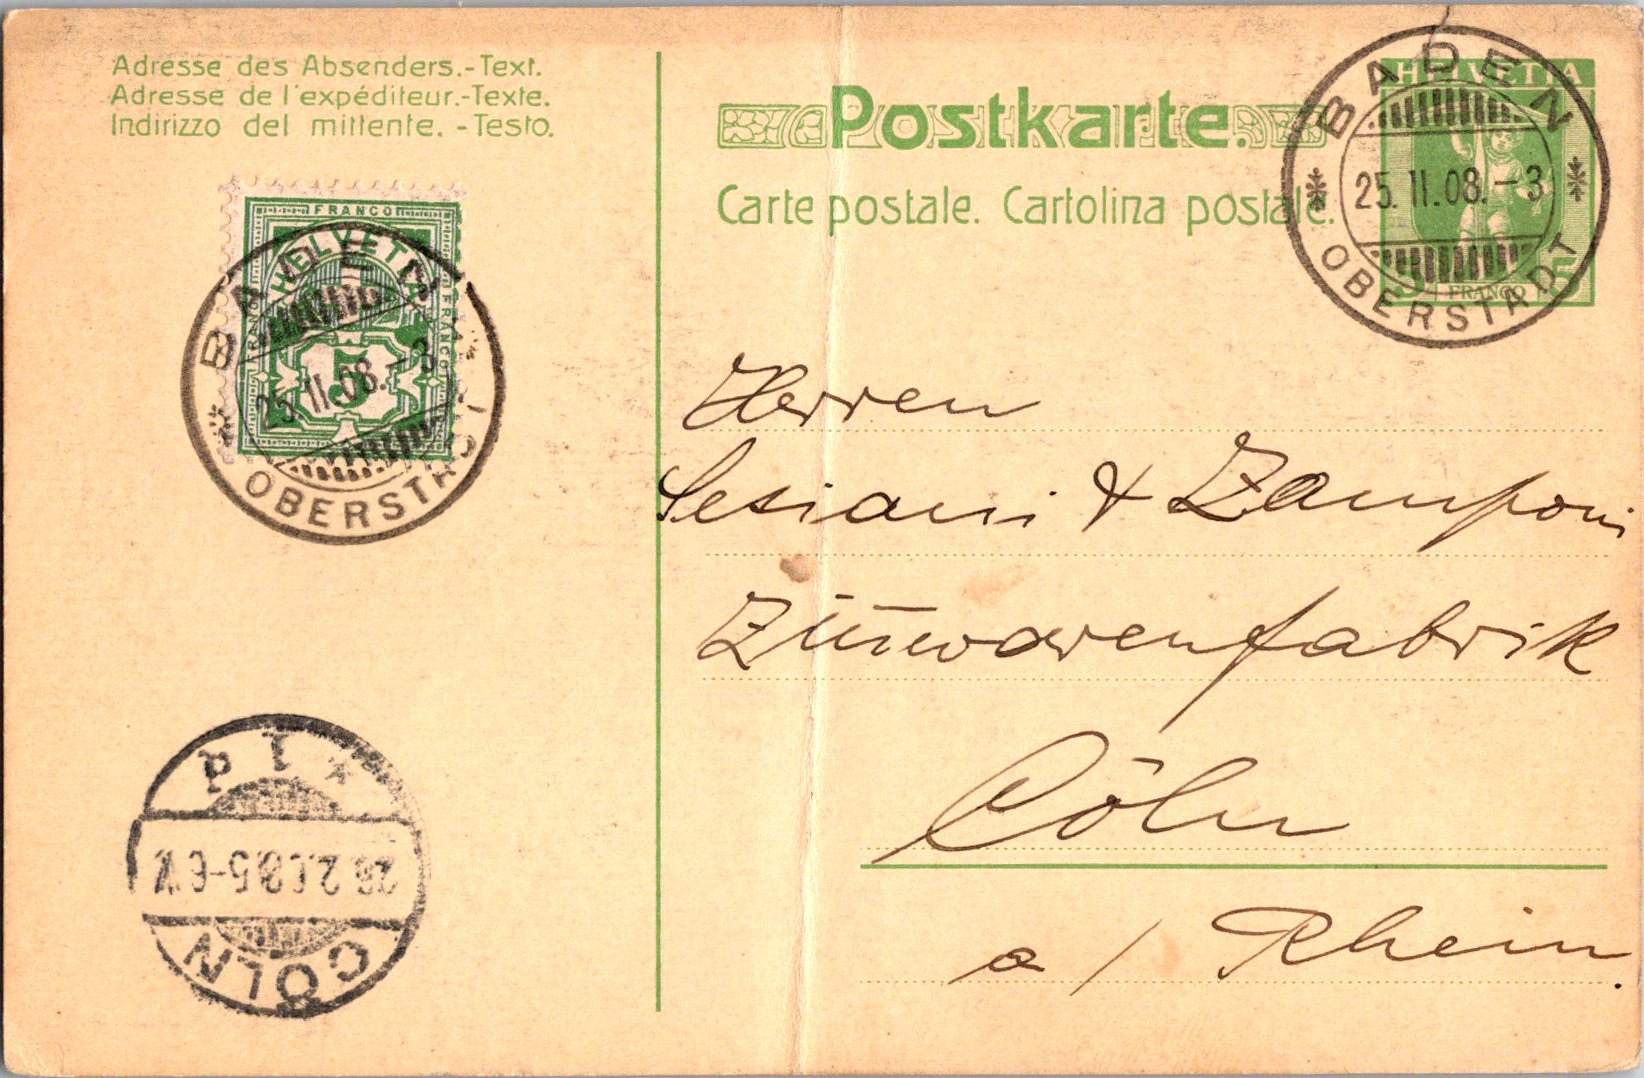 Adresse des Absenders.-Text.
Adresse de l'expéditeur.-Texte.
Indirizzo del mittente. -Testo.
Postkarte.
Carte postale. Cartolina postale.
HELVETIA
FRANCO
5
BADEN
25.II.08.-3
OBERSTADT
FRANCO
HELVETIA
FRANCO
FRANCO
5
BADEN
25.II.08.-3
OBERSTADT
Herren
Sesiani & Zamponi
Zünwarenfabrik
Cöln
a/Rhein.
CÖLN
5-6V.